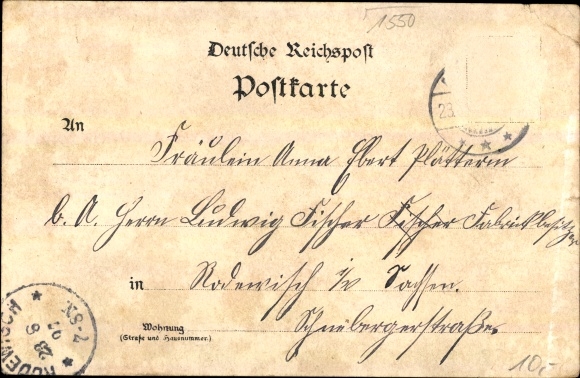 1550
Deutsche Reichspost
Postkarte
23
An
Fräulein Anna Ebert Plätterin
b. A. Herrn Ludwig Fischer Fischer Fabrikbesitzer
in Rodewisch i/V Sachsen.
Wohnung
(Straße und Hausnummer.)
Schnebergerstraße
7-8N.
23 6
10.-